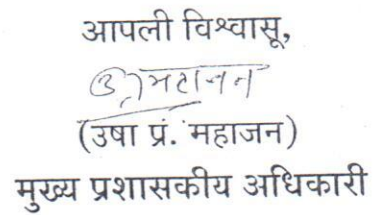 आपली विश्वासू,
उ. महाजन
(उषा प्रं. महाजन)
मुख्य प्रशासकीय अधिकारी